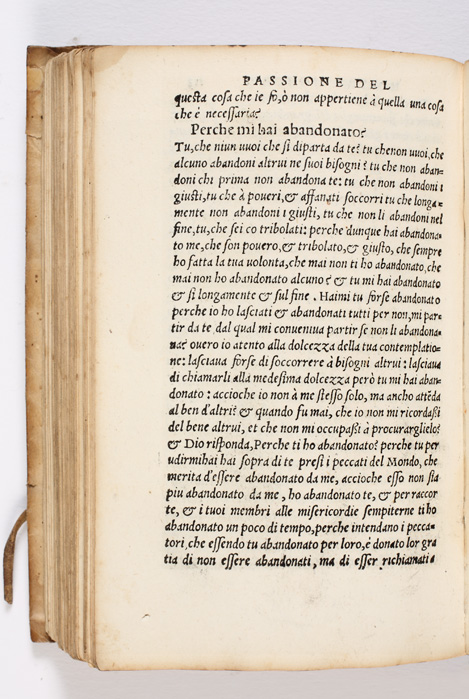 PASSIONE DEL
questa cosa che ie fò, ò non appertiene à quella una cosa
che è necessaria?
Perche mi hai abandonato?
Tu, che niun uuoi che si diparta da te? tu che non uuoi, che
alcuno abandoni altrui ne suoi bisogni? tu che non aban=
doni chi prima non abandona te: tu che non abandoni i
giusti, tu che à poueri, & affanati soccorri tu che longa=
mente non abandoni i giusti, tu che non li abandoni nel
fine, tu, che sei co tribolati: perche dunque hai abandona=
to me, che son pouero, & tribolato, & giusto, che sempre
ho fatta la tua uolonta, che mai non ti ho abandonato, che
mai non ho abandonato alcuno? & tu mi hai abandonato
& si longamente & sul fine. Haimi tu forse abandonato
perche io ho lasciati & abandonati tutti per non, mi par=
tir da te, dal qual mi conueniua partir se non li abandona
ua? ouero io atento alla dolcezza della tua contemplatio=
ne: lasciaua forse di soccorrere à bisogni altrui: lasciaua
di chiamarli alla medesima dolcezza però tu mi hai aban=
donato: accioche io non à me stesso solo, ma ancho attēda
al ben d'altri? & quando fu mai, che io non mi ricordaßi
del bene altrui, et che non mi occupaßi à procurarglielo?
& Dio risponda, Perche ti ho abandonato? perche tu per
udirmihai hai sopra di te presi i peccati del Mondo, che
merita d'essere abandonato da me, accioche esso non sia
piu abandonato da me, ho abandonato te, & per raccor
te, & i tuoi membri alle misericordie sempiterne ti ho
abandonato un poco di tempo, perche intendano i pecca=
tori, che essendo tu abandonato per loro, è donato lor gra
tia di non essere abandonati, ma di esser richiamati à